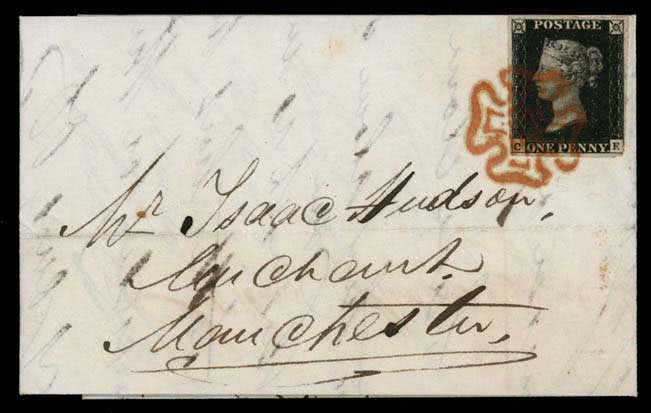 POSTAGE
C E
ONE PENNY
Mr. Isaac Hudson,
Merchant.
Manchester,